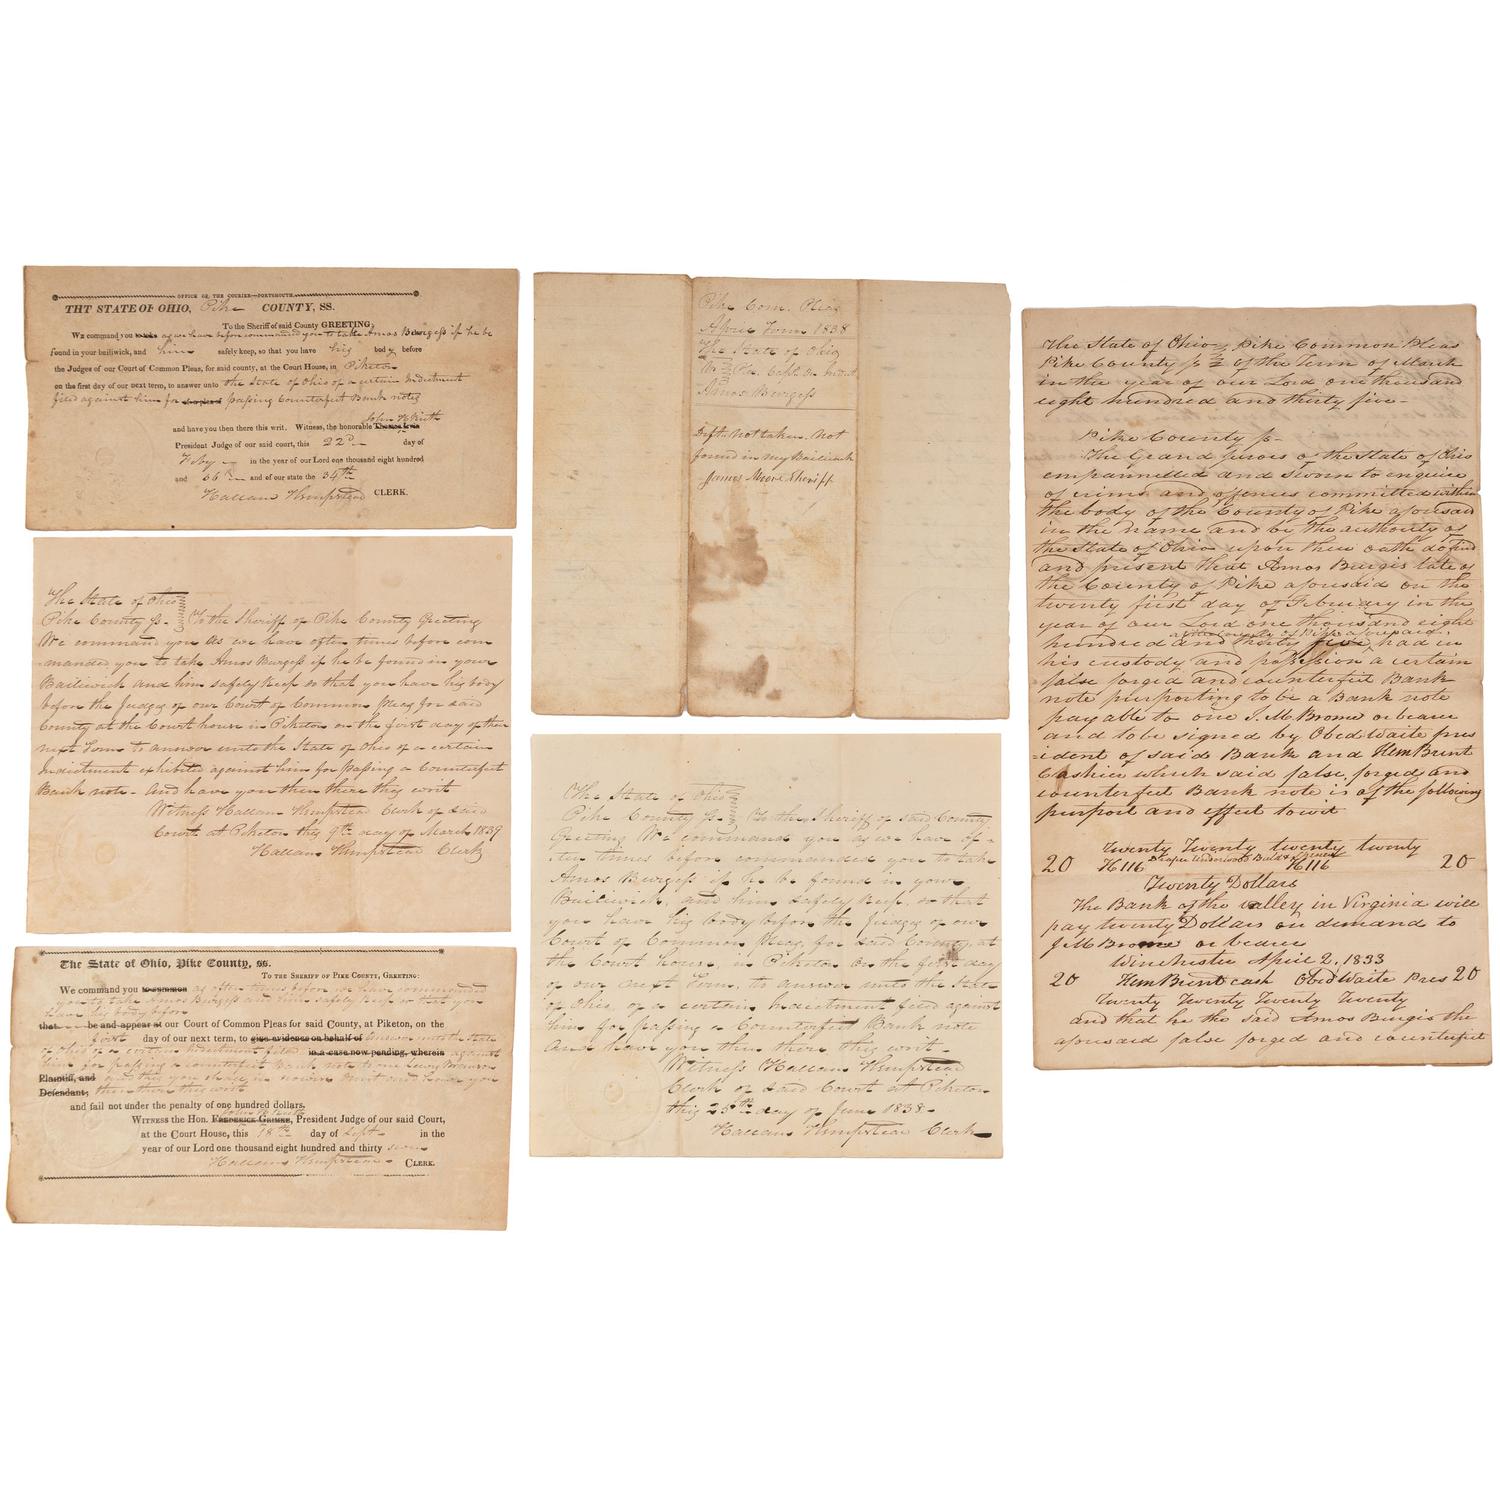 OFFICE OF THE COURIER—PORTSMOUTH
THT STATE OF OHIO, Pike COUNTY, SS.
To the Sheriff of said County GREETING;
WE command you to take as we have before commanded you to take Amos Burgess if he be
found in your bailiwick, and him safely keep, so that you have his body before
the Judges of our Court of Common Pleas, for said county, at the Court House, in Piketon
on the first day of our next term, to answer unto the State of Ohio of a certain Indictment
filed against him for passing Counterfeit Bank notes
and have you then there this writ. Witness, the honorable John H Keith
President Judge of our said court, this 22d. day of
Feby in the year of our Lord one thousand eight hundred
and 36th and of our state the 34th
Hallam Hempstead CLERK.
The State of Ohio
Pike County ss. To the Sheriff of Pike County Greeting
We command you as we have often times before com
manded you to take Amos Burgess if he be found in your
Bailiwick and him safely keep so that you have his body
before the Judges of our Court of Common Pleas for said
County at the Court house in Piketon on the first day of their
next Term to answer unto the State of Ohio of a certain
Indictment exhibited against him for passing a Counterfeit
Bank note - And have you then there this writ
Witness Hallam Hempstead Clerk of said
Court at Piketon this 9th day of March 1839
Hallam Hempstead Clerk
The State of Ohio, Pike County, ss.
TO THE SHERIFF OF PIKE COUNTY, GREETING:
We command you to summon as often times before we have commanded
you to take Amos Burgess and him safely keep so that you
have his body before
that be and appear at our Court of Common Pleas for said County, at Piketon, on the
first day of our next term, to give evidence on behalf of answer unto the State
of Ohio of a certain Indictment filed in a case now pending, wherein against
him for passing a counterfeit Bank note to one
Plaintiff, and
Defendant; then there this writ
and fail not under the penalty of one hundred dollars.
WITNESS the Hon. FREDERICK GRIMKE, John H Keith President Judge of our said Court,
at the Court House, this 18th day of Sept in the
year of our Lord one thousand eight hundred and thirty seven
Hallam Hempstead CLERK.
Pike Com. Pleas
April Term 1838
The State of Ohio
Amos Burgess
Deft. not taken. Not
found in my Bailiwick
James Moore Sheriff
The State of Ohio
Pike County ss. To the Sheriff of said County
Greeting We command you as we have of-
ten times before commanded you to take
Amos Burgess if he be found in your
Bailiwick, and him safely keep, so that
you have his body before the Judges of our
Court of Common Pleas, for said County, at
the Court house, in Piketon on the first day
of our next Term, to answer unto the State
of Ohio, of a certain Indictment filed against
him for passing a Counterfeit Bank note
And have you then there this writ.
Witness Hallam Hempstead
Clerk of said Court at Piketon
this 25th day of June 1838.
Hallam Hempstead Clerk
The State of Ohio Pike Common Pleas
Pike County ss of the Term of March
in the year of our Lord one thousand
eight hundred and thirty five-
Pike County ss-
The Grand Jurors of the State of Ohio
empannelled and sworn to enquire
of crimes and offences committed within
the body of the County of Pike aforesaid
in the name and by the authority of
the State of Ohio upon their oath do find
and present that Amos Burgis late of
the County of Pike aforesaid on the
twenty first day of February in the
year of our Lord one thousand eight
at the County of Pike aforesaid,
hundred and thirty five, had in
his custody and possession a certain
false forged and counterfeit Bank
note purporting to be a Bank note
payable to one J. M Brome or bearer
and to be signed by Obed Waite pres
ident of said Bank and Hem Brent
Cashier which said false, forged and
counterfeit Bank note is of the following
purport and effect to wit
Twenty Twenty twenty twenty
20 H116 Draper Underwood Bald & Spencer H116 20
Twenty Dollars
The Bank of the valley in Virginia will
pay twenty Dollars on demand to
J. M Brome or bearer
Winchester April 2, 1833
20 Hem Brent cash Obed Waite Pres 20
Twenty Twenty Twenty Twenty
and that he the said Amos Burgis the
aforesaid false forged and counterfeit